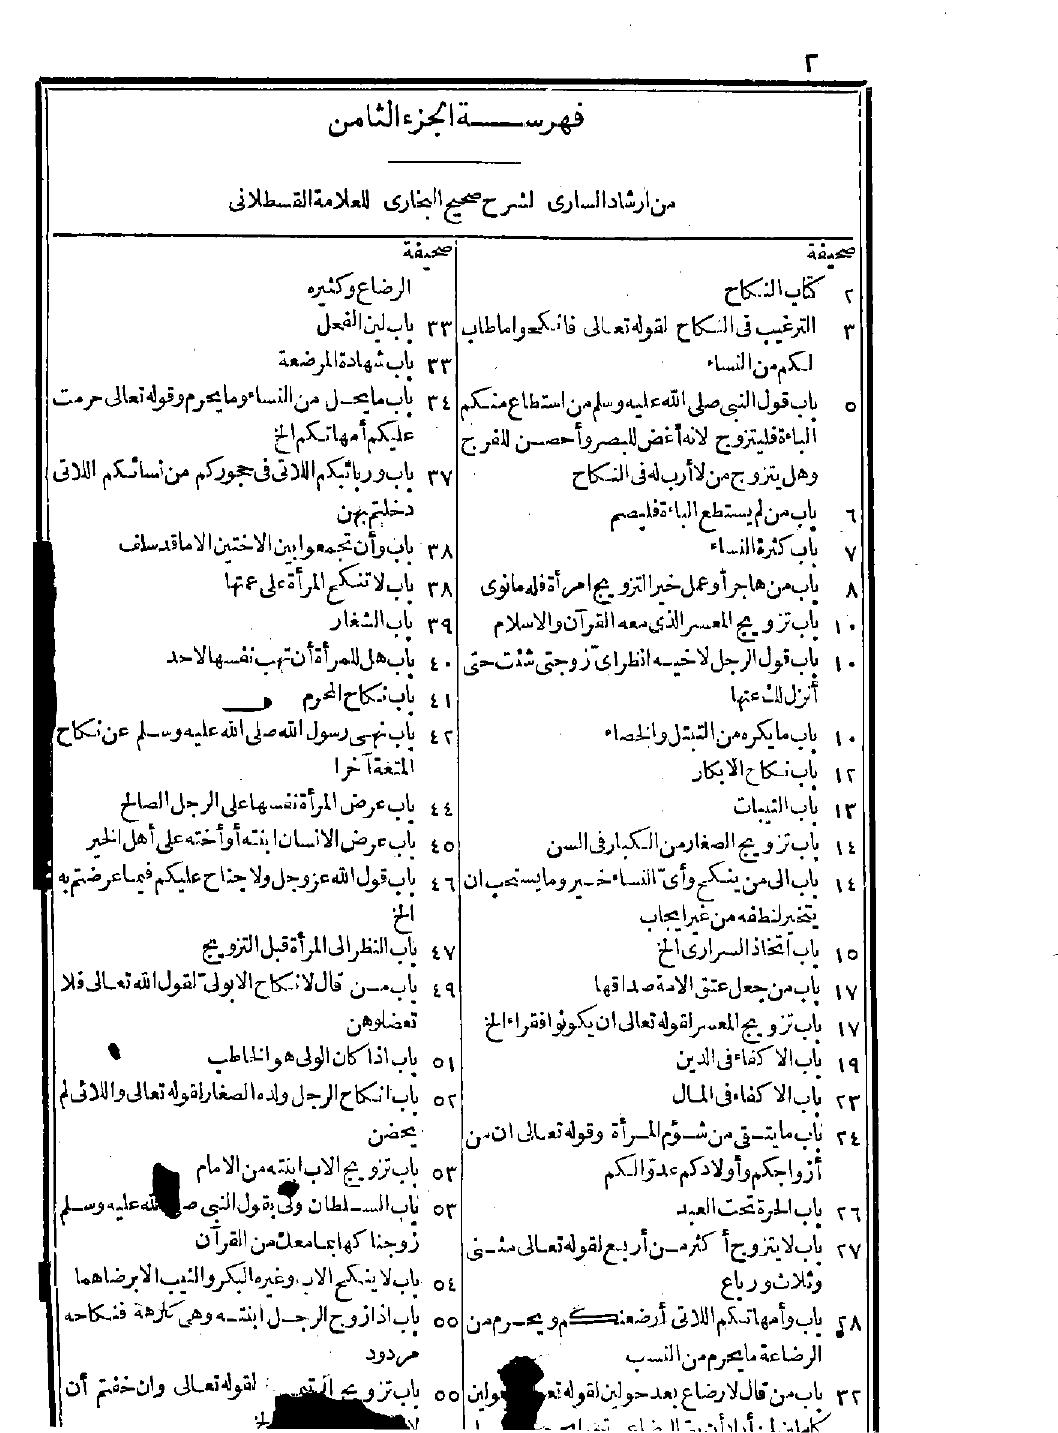 ٢
فهرسة الجزء الثامن
من ارشاد السارى لشرح صحيح البخارى للعلامة القسطلانى
صحيفة
٢ كتاب النكاح
٣ الترغيب فى النكاح لقوله تعالى فانكحوا ماطاب
لكم من النساء
٥ باب قول النبى صلى الله عليه وسلم من استطاع منكم
الباءة فليتزوج لانه أغض للبصر وأحصن للفرج
وهل يتزوج من لا أرب له فى النكاح
٦ باب من لم يستطع الباءة فليصم
٧ باب كثرة النساء
٨ باب من هاجر أو عمل خيرا لتزويج امرأة فله مانوى
١٠ باب تزويج المعسر الذى معه القرآن والاسلام
١٠ باب قول الرجل لاخيه انظر اى زوجتى شئت حتى
أنزل لك عنها
١٠ باب مايكره من التبتل والخصاء
١٢ باب نكاح الابكار
١٣ باب الثيبات
١٤ باب تزويج الصغار من الكبار فى السن
١٤ باب الى من ينكح وأىّ النساء خير ومايستحب ان
يتخير لنطفه من غير ايجاب
١٥ باب اتخاذ السرارى الخ
١٧ باب من جعل عتق الامة صداقها
١٧ باب تزويج المعسر لقوله تعالى ان يكونوا فقراء الخ
١٩ باب الاكفاء فى الدين
٢٣ باب الاكفاء فى المال
٢٤ باب مايتقى من شؤم المرأة وقوله تعالى ان من
أزواجكم وأولادكم عدوّا لكم
٢٦ باب الحرة تحت العبد
٢٧ باب لا يتزوج أكثر من أربع لقوله تعالى مثنى
وثلاث ورباع
٢٨ باب وأمهاتكم اللاتى أرضعنكم ويحرم من
الرضاعة مايحرم من النسب
٣٢ باب من قال لارضاع بعد حولين لقوله حولين
كاملين لمن أراد أن يتم الرضاعة
صحيفة
الرضاع وكثيره
٣٣ باب لبن الفحل
٣٣ باب شهادة المرضعة
٣٤ باب مايحل من النساء ومايحرم وقوله تعالى حرمت
عليكم أمهاتكم الخ
٣٧ باب وربائبكم اللاتى فى حجوركم من نسائكم اللاتى
دخلتم بهن
٣٨ باب وأن تجمعوا بين الاختين الا ماقد سلف
٣٨ باب لا تنكح المرأة على عمتها
٣٩ باب الشغار
٤٠ باب هل للمرأة أن تهب نفسها لاحد
٤١ باب نكاح المحرم
٤٢ باب نهى رسول الله صلى الله عليه وسلم عن نكاح
المتعة آخرا
٤٤ باب عرض المرأة نفسها على الرجل الصالح
٤٥ باب عرض الانسان ابنته أو أخته على أهل الخير
٤٦ باب قول الله عز وجل ولا جناح عليكم فيما عرضتم به
الخ
٤٧ باب النظر الى المرأة قبل التزويج
٤٩ باب من قال لا نكاح الا بولىّ لقول الله تعالى فلا
تعضلوهن
٥١ باب اذا كان الولى هو الخاطب
٥٢ باب انكاح الرجل ولده الصغار لقوله تعالى واللائى لم
يحضن
٥٣ باب تزويج الاب ابنته من الامام
٥٣ باب السلطان ولى بقول النبى صلى الله عليه وسلم
زوجناكها بما معك من القرآن
٥٤ باب لا ينكح الاب وغيره البكر والثيب الا برضاهما
٥٥ باب اذا زوج الرجل ابنته وهى كارهة فنكاحه
مردود
٥٥ باب تزويج لقوله تعالى وان خفتم أن
الخ